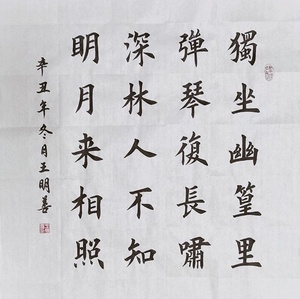 獨坐幽篁里
彈琴復長嘯
深林人不知
明月来相照
辛丑年冬月王明善